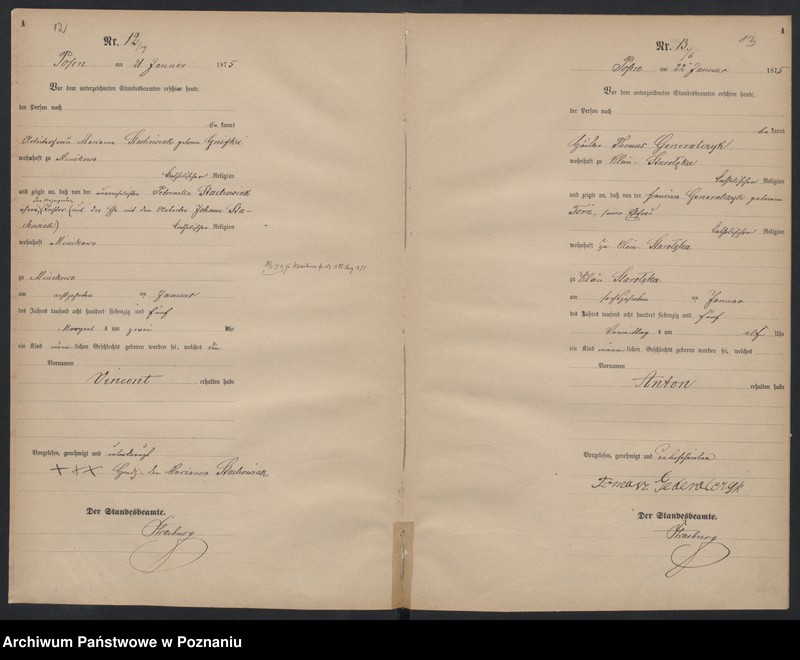 A
12
Nr. 12
Posen am 21 Januar 1875
Vor dem unterzeichneten Standesbeamten erschien heute,
der Person nach
be kannt
Arbeiterfrau Marianna Stachowiak geborene
wohnhaft zu Minikowo
katholischer Religion
und zeigte an, daß von der unverehelichten Petronella Stachowiak
der Anzeigenden
Tochter (aus der Ehe mit dem Arbeiter Johann Sta-
chowiak) katholischer Religion
wohnhaft Minikowo
zu Minikowo
am achtzehnten ten Januar
des Jahres tausend acht hundert siebenzig und fünf
Morgens um zwei Uhr
ein Kind männlichen Geschlechts geboren worden sei, welches die
Vornamen
Vincent erhalten habe
Vorgelesen, genehmigt und unterkreuzt
+ + + der Marianna Stachowiak
Der Standesbeamte.
A
13
Nr. 13
Posen am 22 Januar 1875
Vor dem unterzeichneten Standesbeamten erschien heute,
der Person nach
be kannt
Thomas Generalczyk
wohnhaft zu Klein-Starołęka
katholischer Religion
und zeigte an, daß von der Generalczyk geborenen
seiner Ehefrau
katholischer Religion
wohnhaft zu Klein Starołęka
zu Klein Starołęka
am ten Januar
des Jahres tausend acht hundert siebenzig und fünf
Vormittag um elf Uhr
ein Kind männlichen Geschlechts geboren worden sei, welches
Vornamen
Anton erhalten habe
Vorgelesen, genehmigt und unterschrieben
Tomasz Generalczyk
Der Standesbeamte.
Archiwum Państwowe w Poznaniu